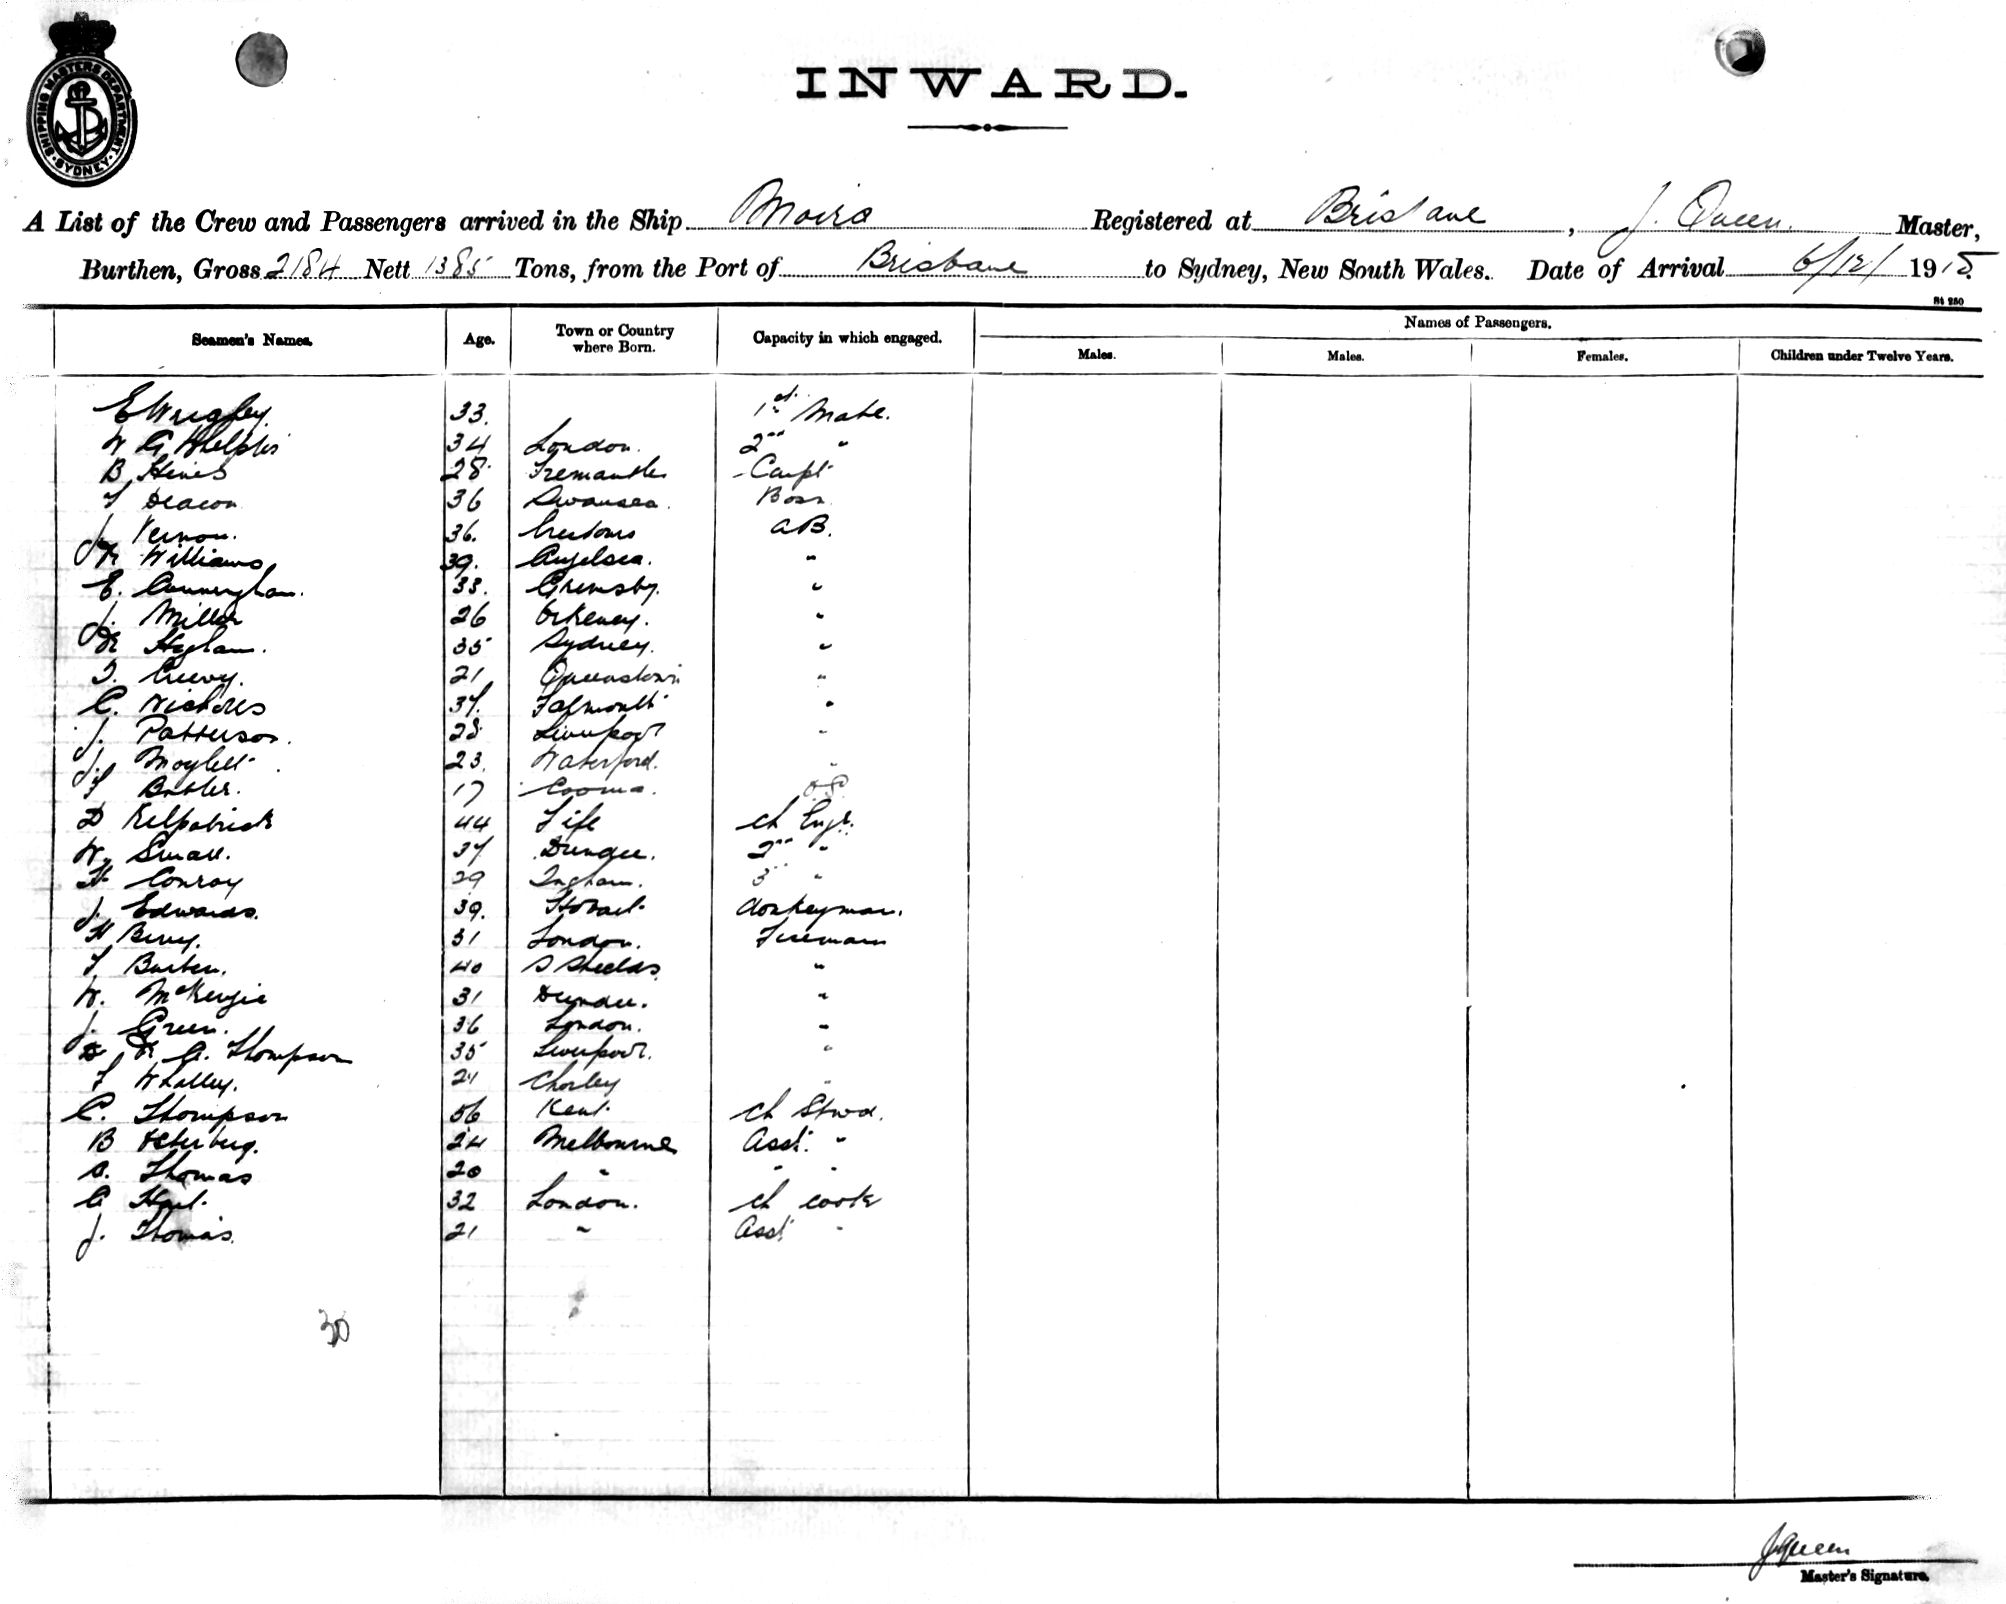 SHIPPING MASTERS DEPARTMENT · SYDNEY ·
INWARD.
A List of the Crew and Passengers arrived in the Ship Moira Registered at Brisbane, J. Queen. Master,
Burthen, Gross 2184 Nett 1385 Tons, from the Port of Brisbane to Sydney, New South Wales. Date of Arrival 6/12/1915
St 250
Seamen's Names. Age. Town or Country where Born. Capacity in which engaged. Names of Passengers.
Males. Males. Females. Children under Twelve Years.
E Wrigley. 33. 1st Mate.
W G Whelpts 34 London. 2nd "
B Hines 28 Fremantle Carpt
F Deacon 36 Swansea. Bosn
J. Vernon. 36. AB.
Williams 39. Anglesea. "
E. Cunningham. 33. Grimsby. "
J. Miller 26 Orkeney. "
Higham. 35 Sydney. "
T. Creevy. 21 Queenstown "
C. Nicholls 37. Falmouth "
J. Patterson. 28 Liverpool "
J. Moylett 23. Waterford. "
F Butler. 17 Cooma. O.S.
D Kilpatrick 44 Fife ch Engr.
W. Small. 37 Dundee. 2nd "
H Conroy 29 Ingham. 3 "
J. Edwards. 39. Hobart donkeyman.
H Berry. 31 London. Fireman
F Burten. 40 S Shields "
W. McKenzie 31 Dundee. "
J. Green. 36 London. "
A. Thompson 35 Liverpool. "
F Whalley. 21 Chorley "
C. Thompson 56 Kent ch Stwd.
B 24 Melbourne Asst. "
A. Thomas 20 " " "
G Hart 32 London. ch cook
J. Thomas. 21 " Asst "
30
J Queen
Master's Signature.